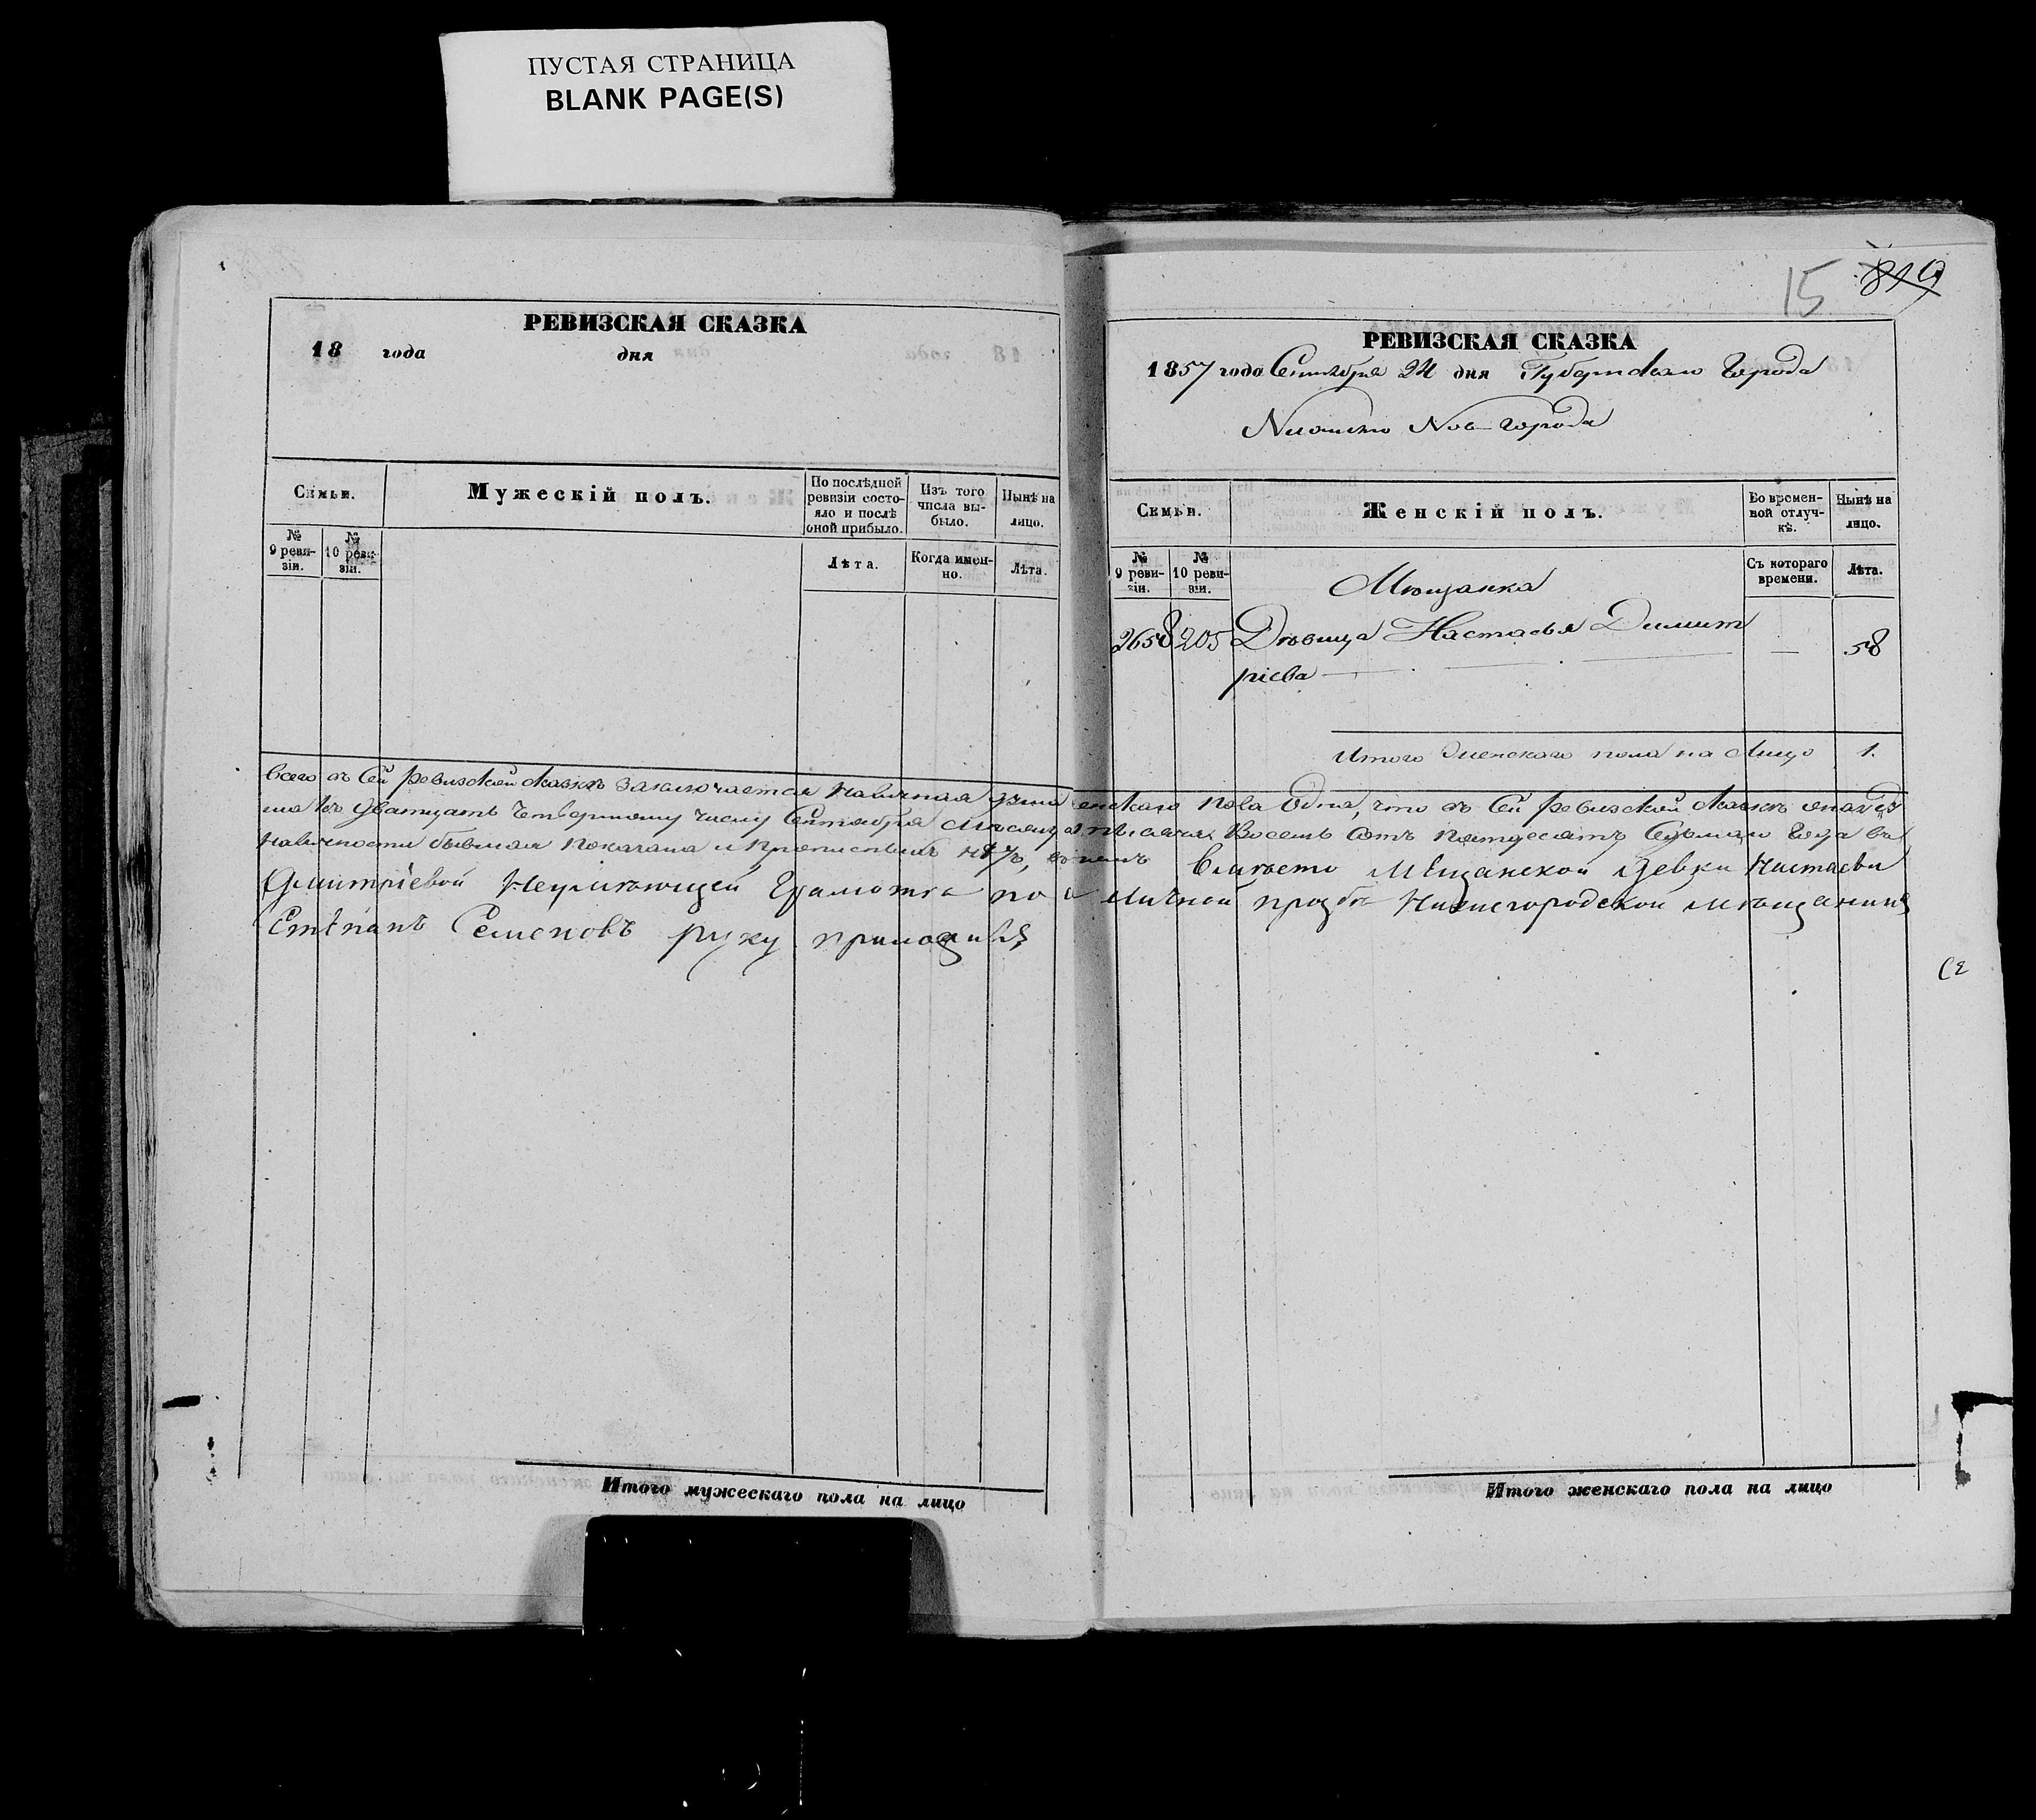 ПУСТАЯ СТРАНИЦА
BLANK PAGE(S)
РЕВИЗСКАЯ СКАЗКА
18 года дня
Семьи.
Мужескій полъ.
По послѣдней ревизіи состояло и послѣ оной прибыло.
Изъ того числа выбыло.
Нынѣ на лицо.
№ 9 ревизіи.
№ 10 ревизіи.
Лѣта.
Когда именно.
Лѣта.
15 819
РЕВИЗСКАЯ СКАЗКА
1857 года Сентября 24 дня Губернскаго Города
Нижняго Нов-города
Семьи.
Женскій полъ.
Во временной отлучкѣ.
Нынѣ на лицо.
№ 9 ревизіи.
№ 10 ревизіи.
Съ котораго времени.
Лѣта.
Мѣщанка
2658 205 Дѣвица Настасья Димит — 58
ріева
Итого женскаго пола на Лицо 1.
Всего въ Сей ревизской сказкѣ заключается наличная душа женскаго пола Одна, что въ Сей ревизской сказкѣ
къ дватцать четвертому числу Сентября Мѣсяца тысяча Восемь сотъ пятдесятъ Седьмаго года въ
наличности бывшая показана и прописныхъ нѣтъ, Вмѣсто Мѣщанской девки Настасьи
Дмитріевой неумѣющей Грамотѣ по Личной прозбѣ Нижегородской мѣщанинъ
Степанъ Семеновъ руку приложилъ
Итого мужескаго пола на лицо
Итого женскаго пола на лицо